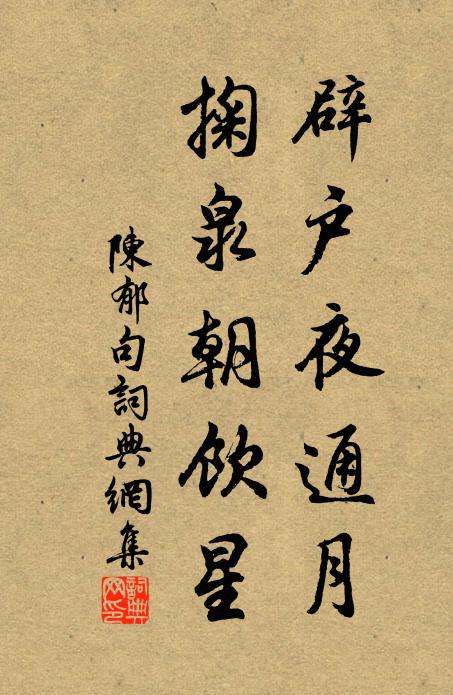 辟户夜通月
掬泉朝饮星
陳郁句詞典網集
詞典网印